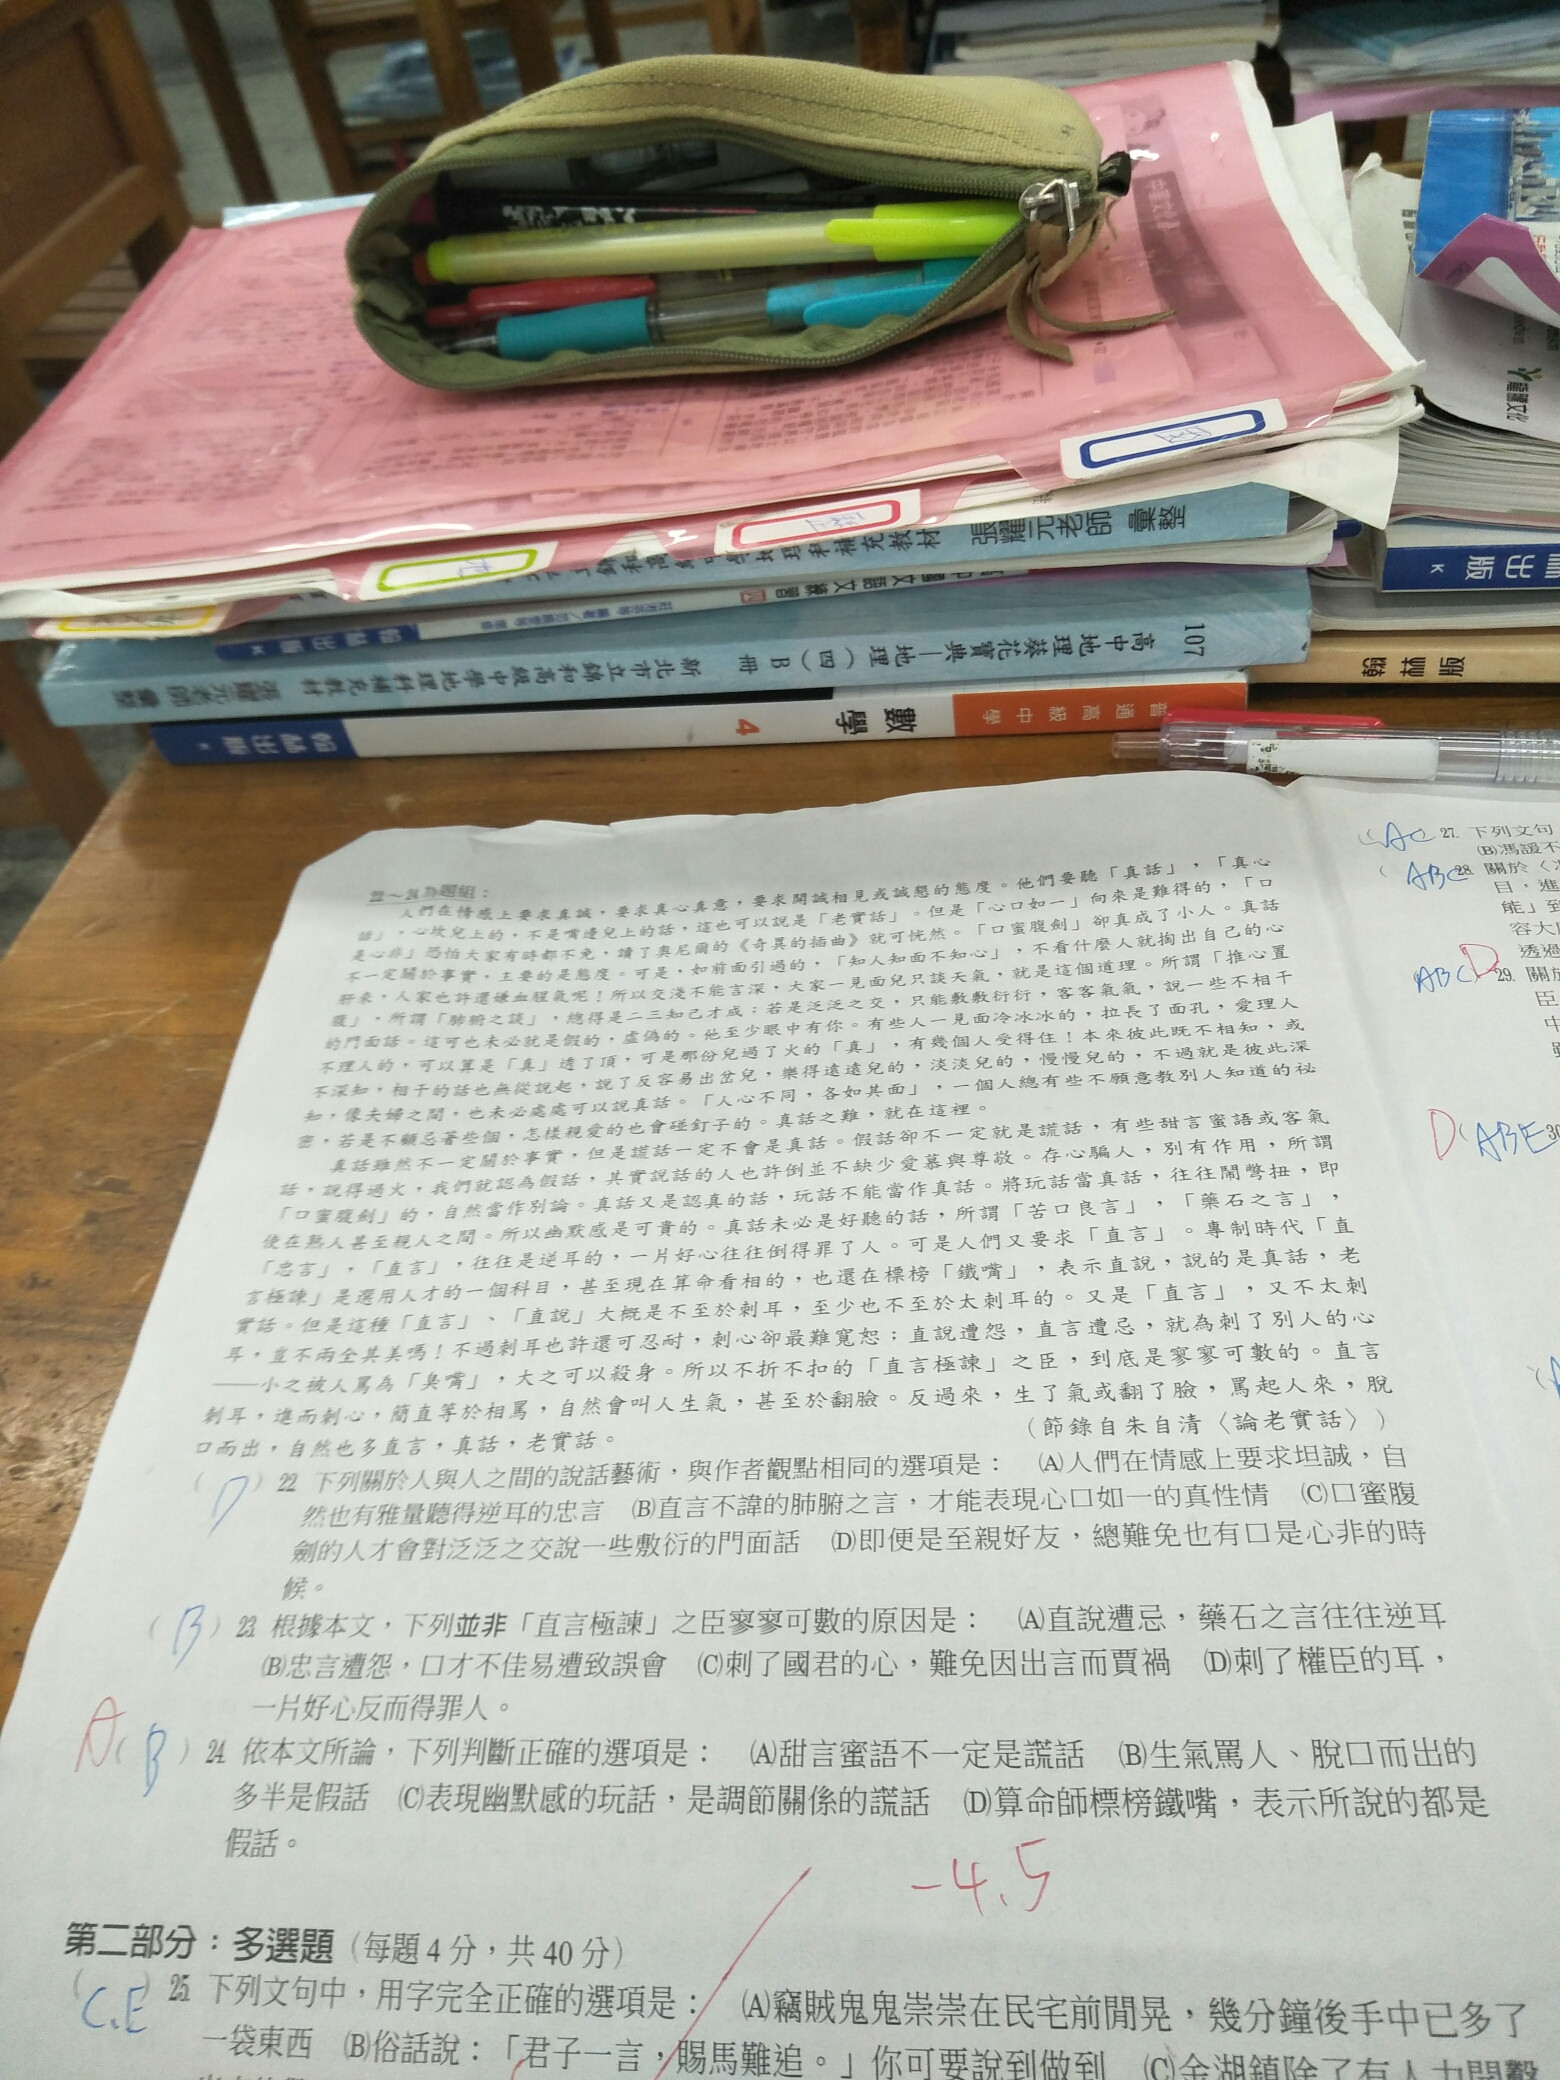 張耀元老師 彙整
107
高中地理葵花寶典—地理(四)B冊 新北市立錦和高級中學地理科補充教材 張耀元老師 彙整
普通高級中學 數學 4 翰林出版
翰林出版
翰林版
龍騰文化
22~24為題組:
人們在情感上要求真誠,要求真心真意,要求開誠相見或誠懇的態度。他們要聽「真話」,「真心
話」,心坎兒上的,不是嘴邊兒上的話,這也可以說是「老實話」。但是「心口如一」向來是難得的,「口
是心非」恐怕大家有時都不免,讀了奧尼爾的《奇異的插曲》就可恍然。「口蜜腹劍」卻真成了小人。真話
不一定關於事實,主要的是態度。可是,如前面引過的,「知人知面不知心」,不看什麼人就掏出自己的心
肝來,人家也許還嫌血腥氣呢!所以交淺不能言深,大家一見面兒只談天氣,就是這個道理。所謂「推心置
腹」,所謂「肺腑之談」,總得是二三知己才成;若是泛泛之交,只能敷敷衍衍,客客氣氣,說一些不相干
的門面話。這可也未必就是假的,虛偽的。他至少眼中有你。有些人一見面冷冰冰的,拉長了面孔,愛理人
不理人的,可以算是「真」透了頂,可是那份兒過了火的「真」,有幾個人受得住!本來彼此既不相知,或
不深知,相干的話也無從說起,說了反容易出岔兒,樂得遠遠兒的,淡淡兒的,慢慢兒的,不過就是彼此深
知,像夫婦之間,也未必處處可以說真話。「人心不同,各如其面」,一個人總有些不願意教別人知道的祕
密,若是不顧忌著些個,怎樣親愛的也會碰釘子的。真話之難,就在這裡。
真話雖然不一定關於事實,但是謊話一定不會是真話。假話卻不一定就是謊話,有些甜言蜜語或客氣
話,說得過火,我們就認為假話,其實說話的人也許倒並不缺少愛慕與尊敬。存心騙人,別有作用,所謂
「口蜜腹劍」的,自然當作別論。真話又是認真的話,玩話不能當作真話。將玩話當真話,往往鬧彆扭,即
使在熟人甚至親人之間。所以幽默感是可貴的。真話未必是好聽的話,所謂「苦口良言」,「藥石之言」,
「忠言」,「直言」,往往是逆耳的,一片好心往往倒得罪了人。可是人們又要求「直言」。專制時代「直
言極諫」是選用人才的一個科目,甚至現在算命看相的,也還在標榜「鐵嘴」,表示直說,說的是真話,老
實話。但是這種「直言」、「直說」大概是不至於刺耳,至少也不至於太刺耳的。又是「直言」,又不太刺
耳,豈不兩全其美嗎!不過刺耳也許還可忍耐,刺心卻最難寬恕;直說遭怨,直言遭忌,就為刺了別人的心
——小之被人罵為「臭嘴」,大之可以殺身。所以不折不扣的「直言極諫」之臣,到底是寥寥可數的。直言
刺耳,進而刺心,簡直等於相罵,自然會叫人生氣,甚至於翻臉。反過來,生了氣或翻了臉,罵起人來,脫
口而出,自然也多直言,真話,老實話。 (節錄自朱自清〈論老實話〉)
( D ) 22 下列關於人與人之間的說話藝術,與作者觀點相同的選項是: (A)人們在情感上要求坦誠,自
然也有雅量聽得逆耳的忠言 (B)直言不諱的肺腑之言,才能表現心口如一的真性情 (C)口蜜腹
劍的人才會對泛泛之交說一些敷衍的門面話 (D)即便是至親好友,總難免也有口是心非的時
候。
( B ) 23 根據本文,下列並非「直言極諫」之臣寥寥可數的原因是: (A)直說遭忌,藥石之言往往逆耳
(B)忠言遭怨,口才不佳易遭致誤會 (C)刺了國君的心,難免因出言而賈禍 (D)刺了權臣的耳,
一片好心反而得罪人。
A ( B ) 24 依本文所論,下列判斷正確的選項是: (A)甜言蜜語不一定是謊話 (B)生氣罵人、脫口而出的
多半是假話 (C)表現幽默感的玩話,是調節關係的謊話 (D)算命師標榜鐵嘴,表示所說的都是
假話。
-4.5
第二部分:多選題(每題4分,共40分)
( C.E ) 25 下列文句中,用字完全正確的選項是: (A)竊賊鬼鬼崇崇在民宅前閒晃,幾分鐘後手中已多了
一袋東西 (B)俗話說:「君子一言,賜馬難追。」你可要說到做到 (C)金湖鎮除了有人力開鑿
( AC 27. 下列文句
(B)馮諼不
( ABC 28. 關於〈馮
目,進
能」至
容大
透過
ABC D 29. 關於
臣
中
D ( ABE 30